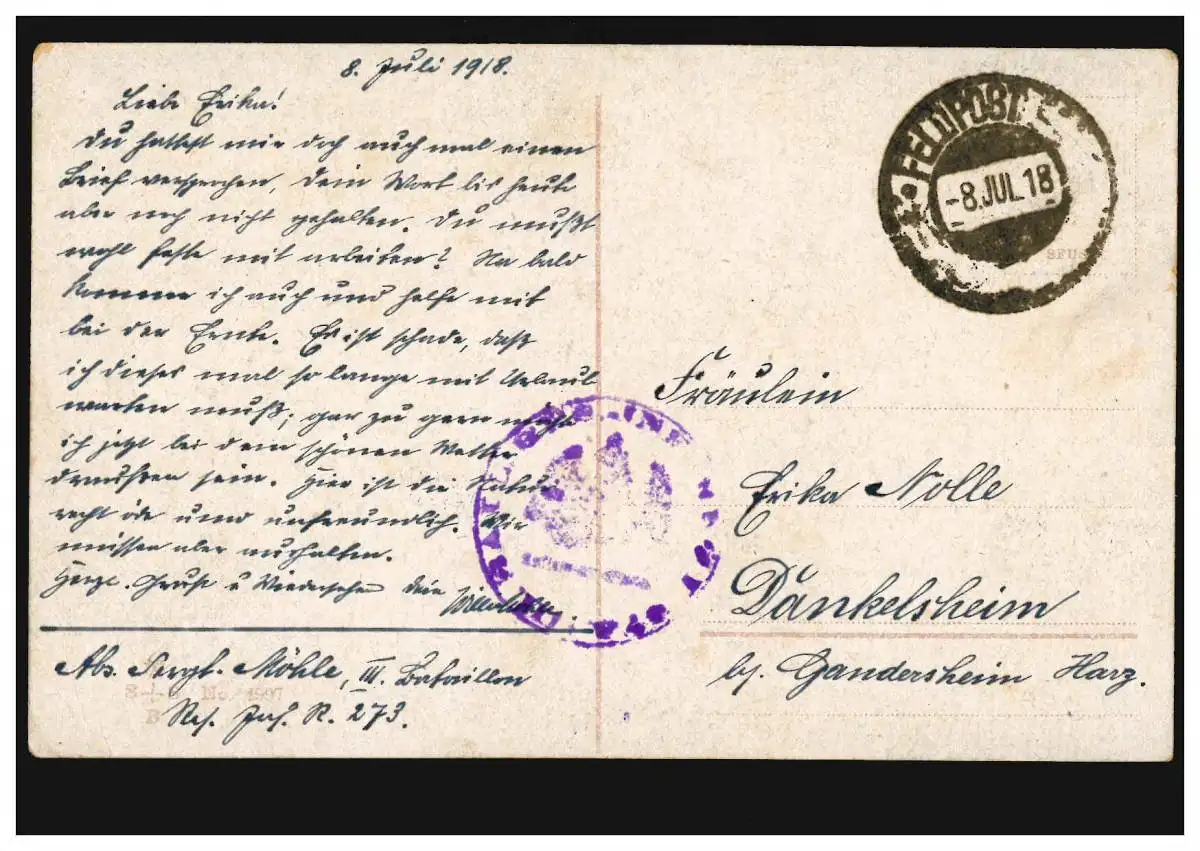 8. Juli 1918.
Liebe Erika!
Du hattest mir doch auch mal einen
Brief versprochen, Dein Wort bis heute
aber noch nicht gehalten. Du mußt
wohl feste mit arbeiten? Na bald
komme ich auch und helfe mit
bei der Ernte. Es ist schade, daß
ich dieses mal so lange mit Urlaub
warten muß; gar zu gern möchte
ich jetzt bei dem schönen Wetter
draußen sein. Hier ist die Natur
recht öde und unfreundlich. Wir
müssen aber aushalten.
Herzl. Gruß u Wiedersehen Dein
Abs. Sergt. Möhle, III. Bataillon
Res. Inf. R. 273.
S+ No. 1997
B
FELDPOST
-8.JUL.18
Fräulein
Erika Nolle
Dankelsheim
bj. Gandersheim Harz.